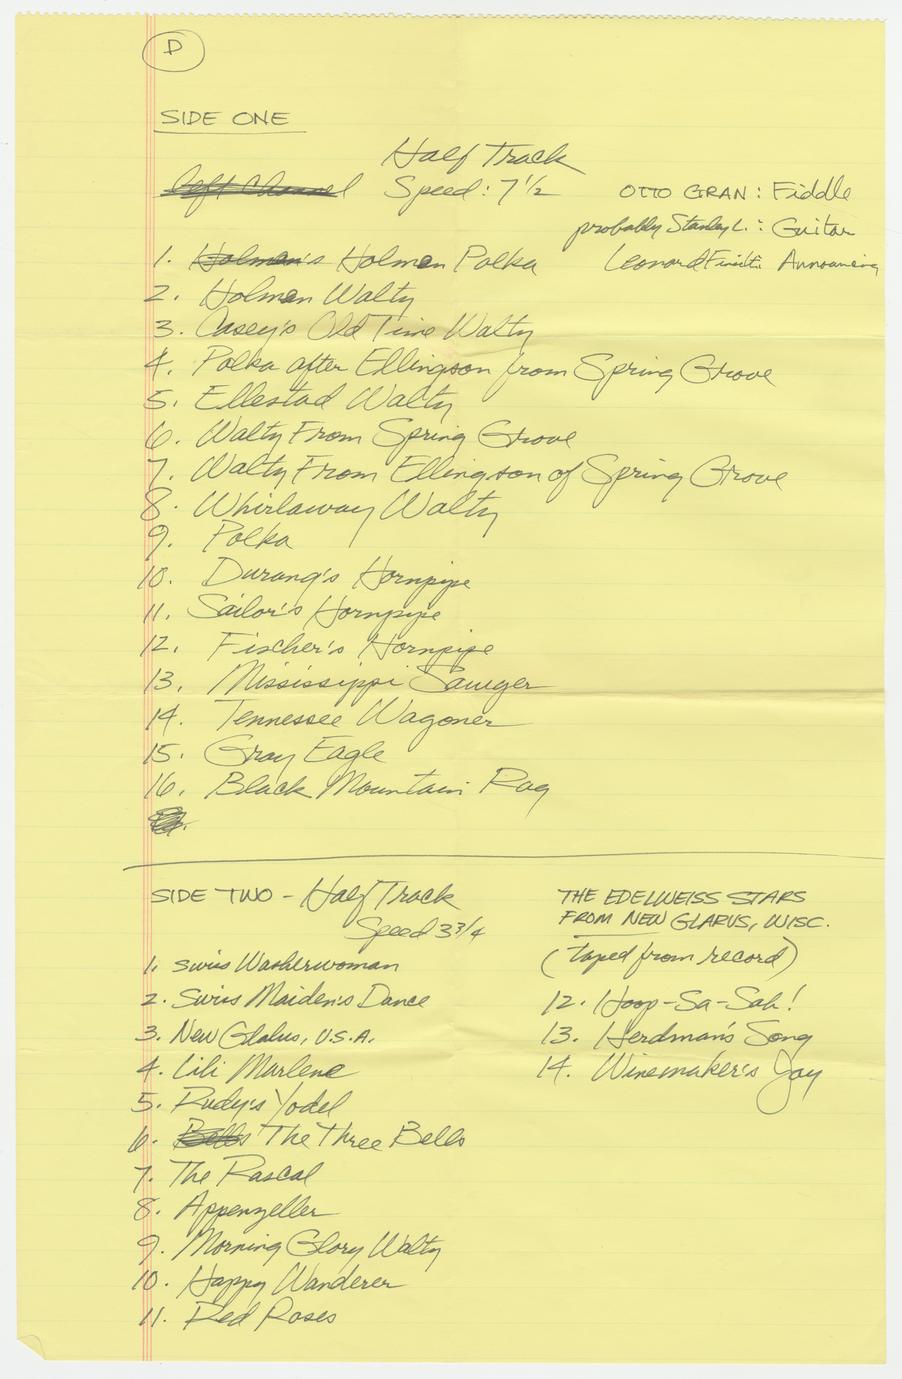 D
SIDE ONE
Half Track
Left Channel Speed: 7 1/2
OTTO GRAN: Fiddle
probably Stanley L.: Guitar
Leonard Announcing
1. Holmen's Holmen Polka
2. Holmen Waltz
3. Casey's Old Time Waltz
4. Polka after Ellingson from Spring Grove
5. Ellestad Waltz
6. Waltz From Spring Grove
7. Waltz From Ellingson of Spring Grove
8. Whirlaway Waltz
9. Polka
10. Durang's Hornpipe
11. Sailor's Hornpipe
12. Fischer's Hornpipe
13. Mississippi Sawyer
14. Tennessee Wagoner
15. Gray Eagle
16. Black Mountain Rag
SIDE TWO - Half Track
Speed 3 3/4
THE EDELWEISS STARS
FROM NEW GLARUS, WISC.
(taped from record)
1. Swiss Washerwoman
2. Swiss Maiden's Dance
3. New Glalus, U.S.A.
4. Lili Marlene
5. Rudy's Yodel
6. Bells The Three Bells
7. The Rascal
8. Appenzeller
9. Morning Glory Waltz
10. Happy Wanderer
11. Red Roses
12. Hoop-Sa-Sah!
13. Herdman's Song
14. Winemaker's Joy